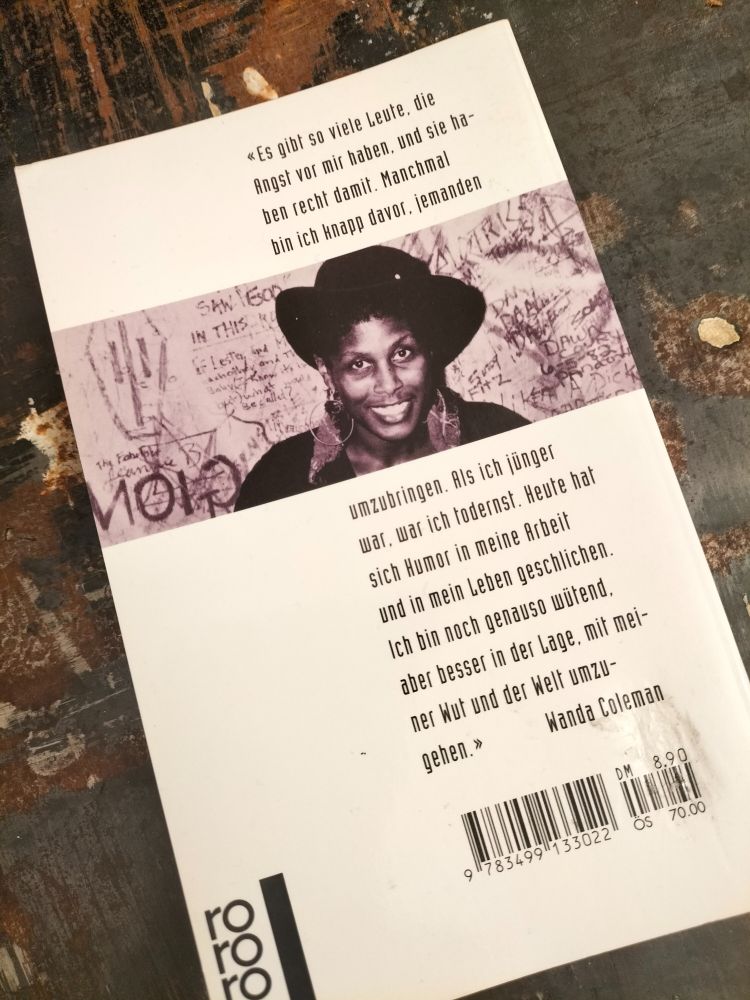 «Es gibt so viele Leute, die
Angst vor mir haben, und sie ha-
ben recht damit. Manchmal
bin ich knapp davor, jemanden
SAN
IN THIS
umzubringen. Als ich jünger
war, war ich todernst. Heute hat
sich Humor in meine Arbeit
und in mein Leben geschlichen.
Ich bin noch genauso wütend,
aber besser in der Lage, mit mei-
ner Wut und der Welt umzu-
gehen.» Wanda Coleman
DM 8.90
9 783499 133022
ÖS 70.00
ro
ro
ro